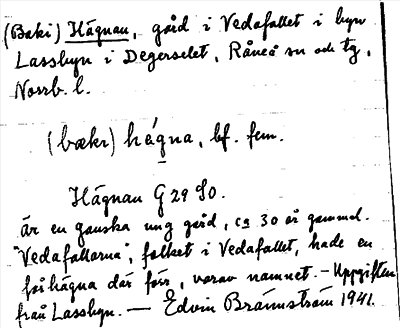 (Baki) Hägnan, gård i Vedafallet i byn
Lassbyn i Degerselet, Råneå sn och tg,
Norrb. l.
(bækr) hégna, bf. fem.
Hägnan G 29 SO.
är en ganska ung gård, ca 30 år gammal.
"Vedafallarna", folket i Vedafallet, hade en
fårhägna där förr, varav namnet. – Uppgiften
från Lassbyn. — Edvin Brännström 1941.